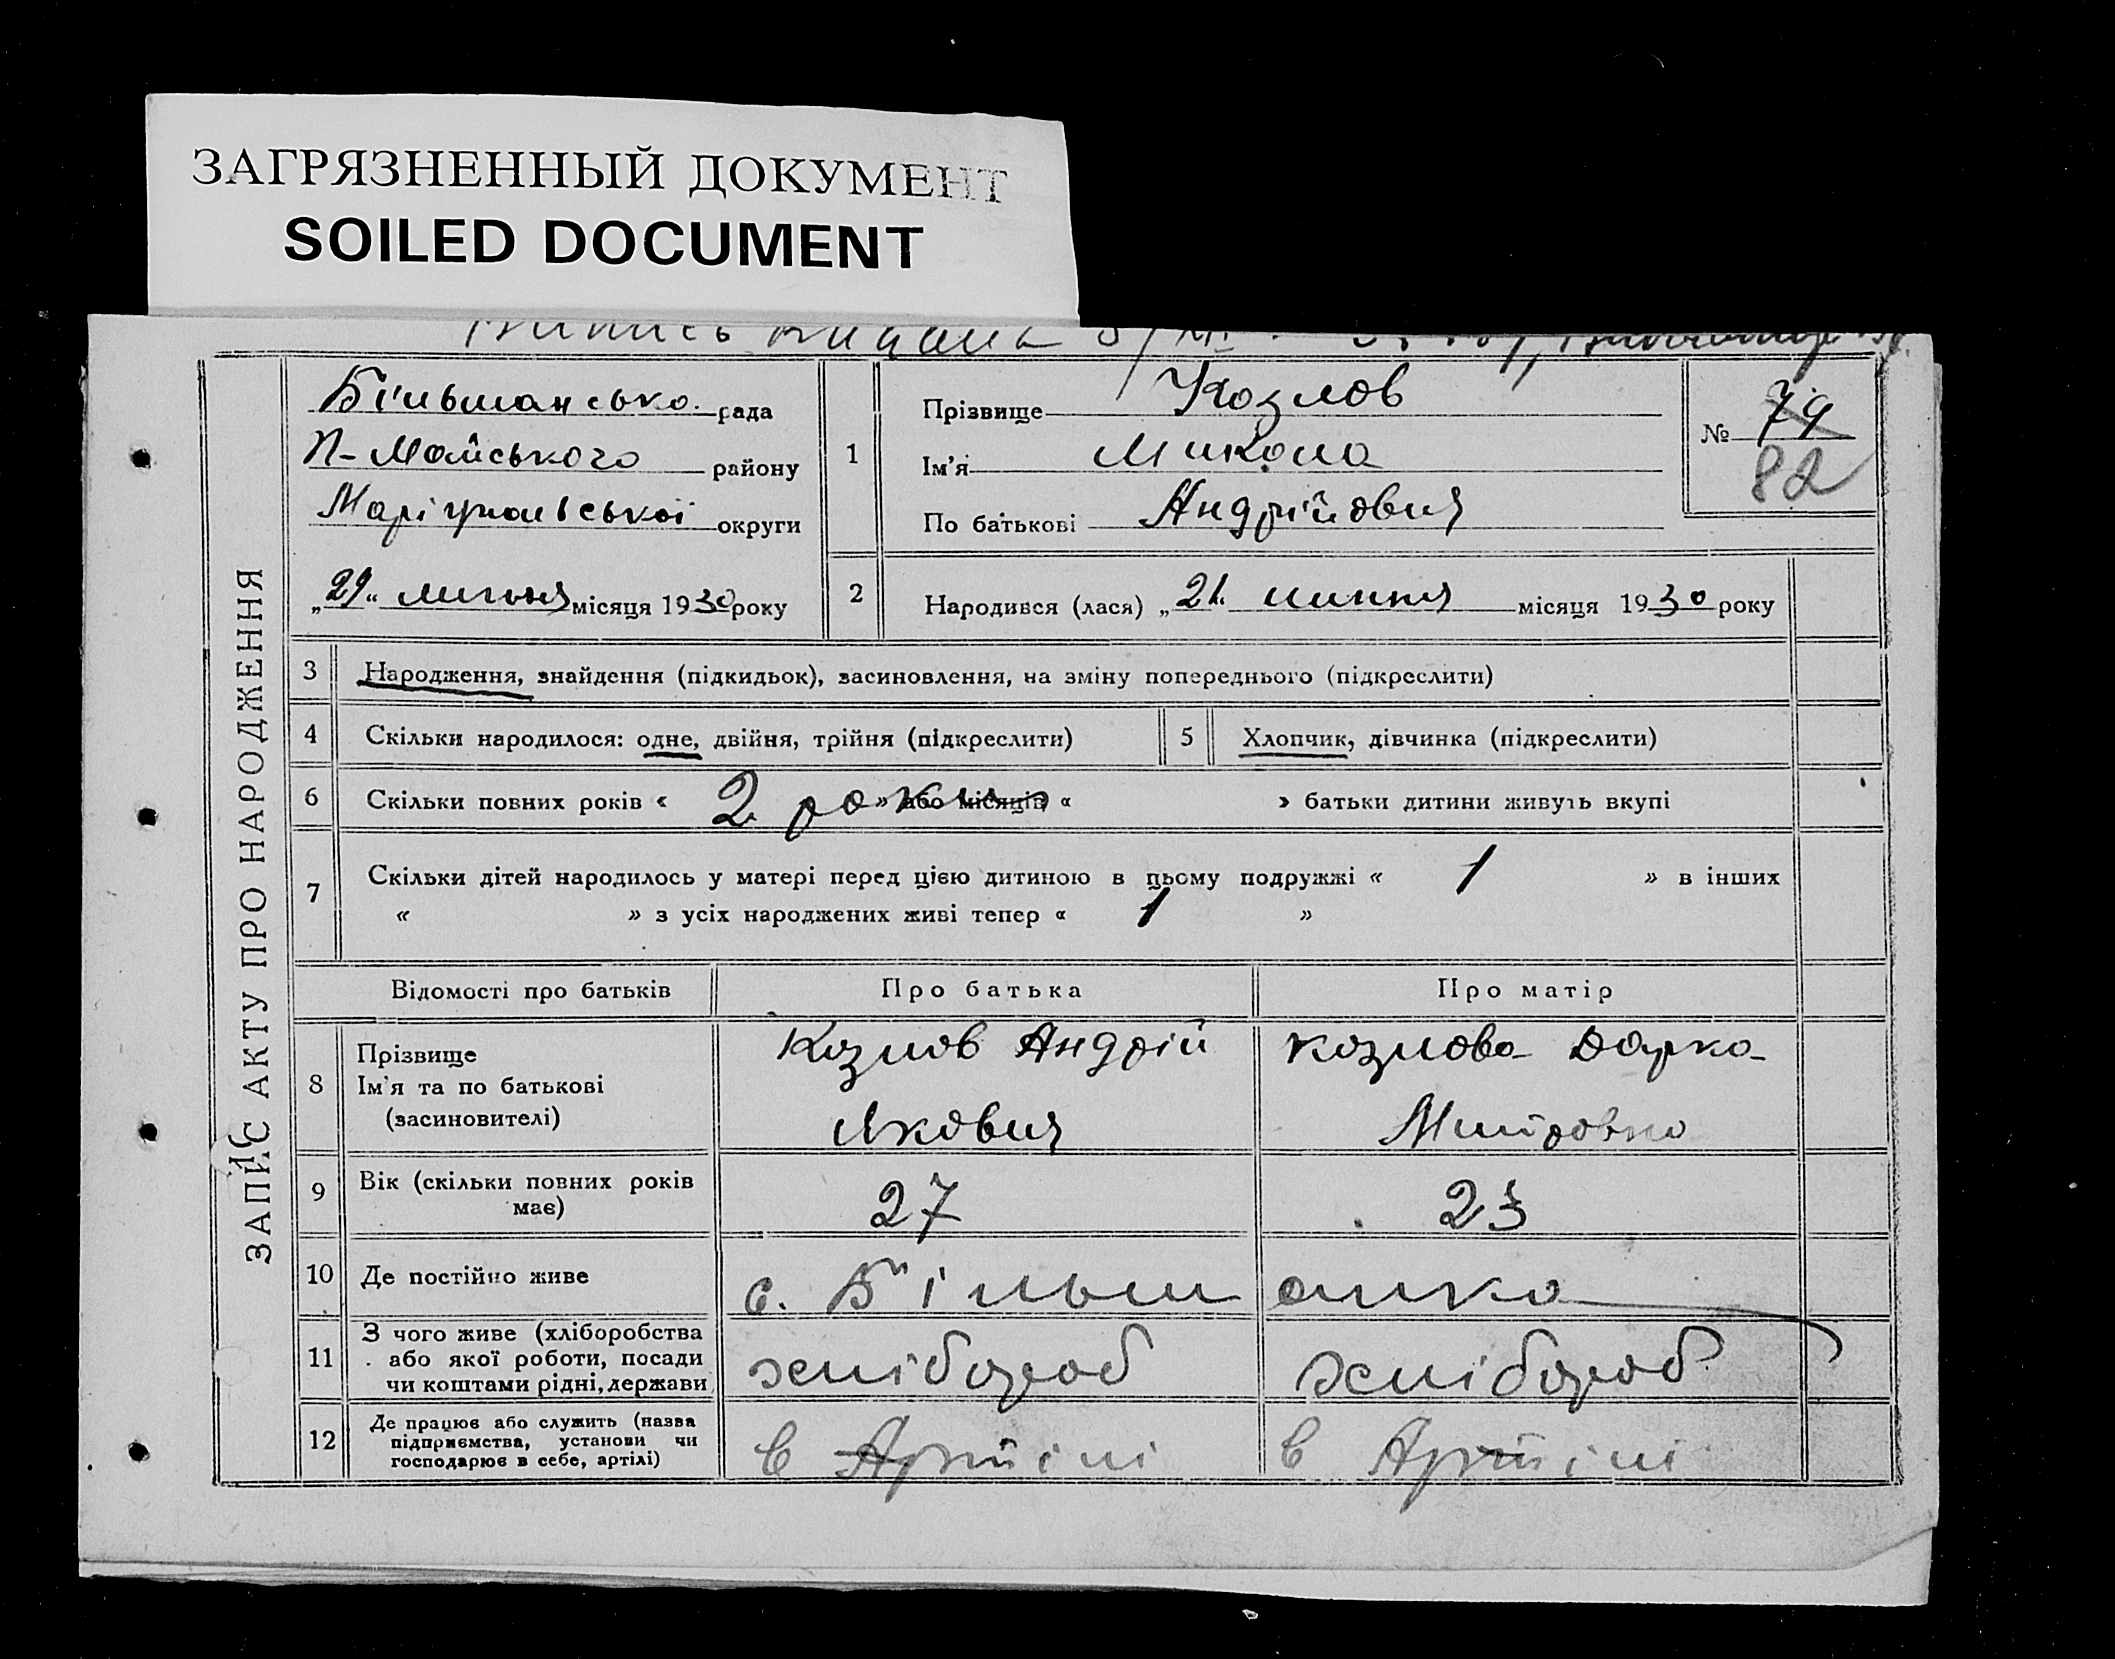 ЗАГРЯЗНЕННЫЙ ДОКУМЕНТ
SOILED DOCUMENT
Випись видана
ЗАПИС АКТУ ПРО НАРОДЖЕННЯ
Більмансько. рада
П-Майського району
Маріупольської округи
„29“ липня місяця 1930 року
1
Прізвище Козлов
Ім’я Микола
По батькові Андрійович
№ 79
82
2
Народився (лася) „21“ липня місяця 1930 року
3 Народження, знайдення (підкидьок), засиновлення, на зміну попереднього (підкреслити)
4 Скільки народилося: одне, двійня, трійня (підкреслити)
5 Хлопчик, дівчинка (підкреслити)
6 Скільки повних років « 2 роки » або місяців « » батьки дитини живуть вкупі
7 Скільки дітей народилось у матері перед цією дитиною в цьому подружжі « 1 » в інших
« » з усіх народжених живі тепер « 1 »
Відомості про батьків Про батька Про матір
8 Прізвище
Ім’я та по батькові
(засиновителі)
Козлов Андрій
Якович
Козлова Дарка
Митровна
9 Вік (скільки повних років
має)
27
23
10 Де постійно живе
с. Більш анка
11 З чого живе (хліборобства
або якої роботи, посади
чи коштами рідні, держави
хлібороб
хлібороб
12 Де працює або служить (назва
підприємства, установи чи
господарює в себе, артілі)
в Артілі
в Артілі